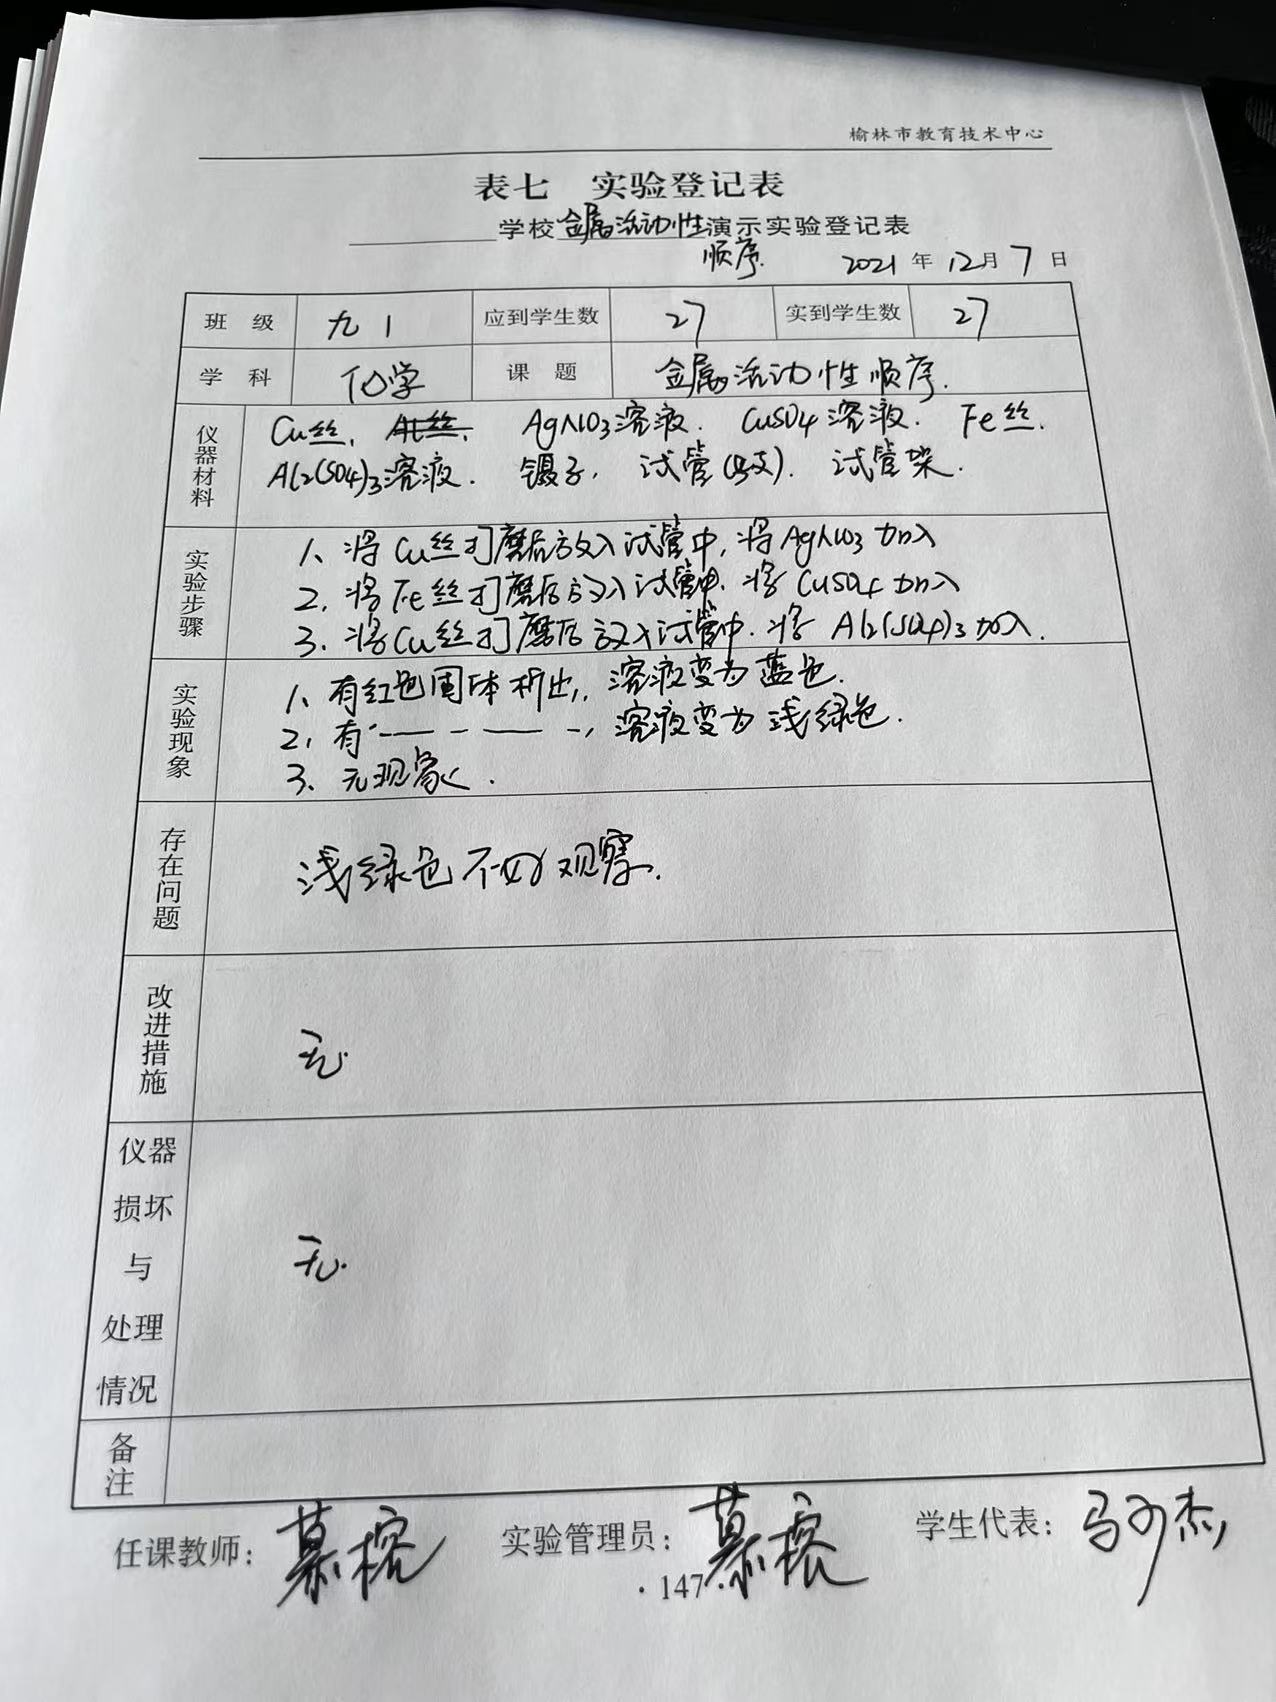 榆林市教育技术中心
表七 实验登记表
学校金属活动性演示实验登记表
顺序.
2021年12月7日
班级 九1 应到学生数 27 实到学生数 27
学科 化学 课题 金属活动性顺序.
仪器材料
Cu丝, Al丝, AgNO3溶液. CuSO4溶液. Fe丝.
Al2(SO4)3溶液. 镊子, 试管(3支). 试管架.
实验步骤
1、将Cu丝打磨后放入试管中, 将AgNO3加入
2, 将Fe丝打磨后放入试管中. 将CuSO4加入
3. 将Cu丝打磨后放入试管中. 将Al2(SO4)3加入.
实验现象
1、有红色固体析出, 溶液变为蓝色.
2, 有 — — - — -, 溶液变为浅绿色.
3、无现象.
存在问题
浅绿色不好观察.
改进措施
无.
仪器损坏与处理情况
无.
备注
任课教师: 慕榕 实验管理员: 慕榕 学生代表: 马杰
·147·